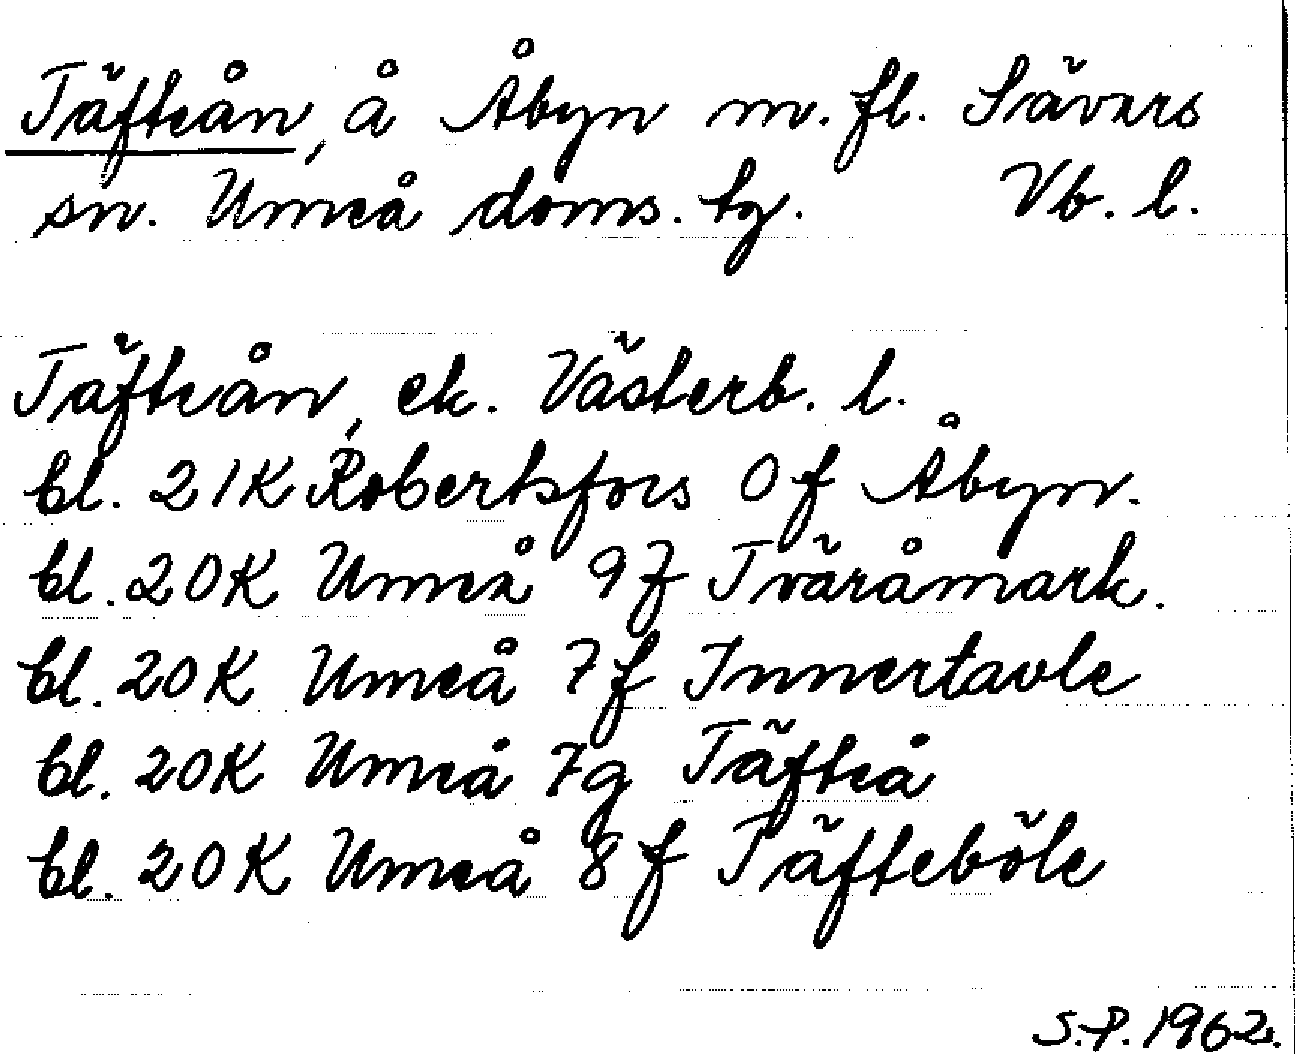 Täfteån, å Åbyn m. fl. Sävars
sn. Umeå doms. tg. Vb. l.
Täfteån, ek. Västerb. l.
bl. 21K Robertsfors 0f Åbyn.
bl. 20K Umeå 9f Tväråmark.
bl. 20K Umeå 7f Innertavle
bl. 20K Umeå 7g Täfteå
bl. 20K Umeå 8f Täfteböle
S.P. 1962.